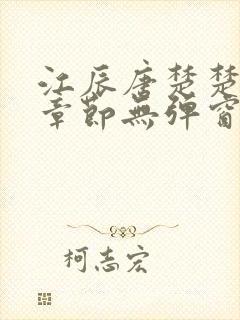 江辰唐楚楚
章節無彈窗
柯志宏